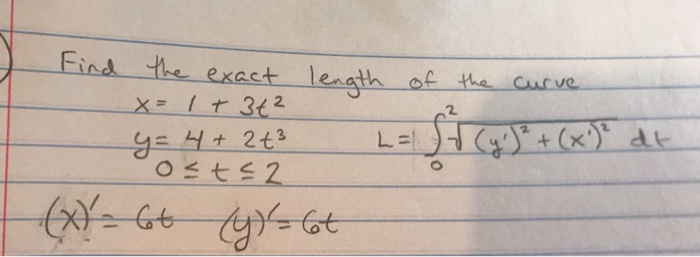 Find the exact length of the curve
x = 1 + 3t²
y = 4 + 2t³ L = ∫₀² √(y')² + (x')² dt
0 ≤ t ≤ 2
(x)' = 6t (y)' = 6t